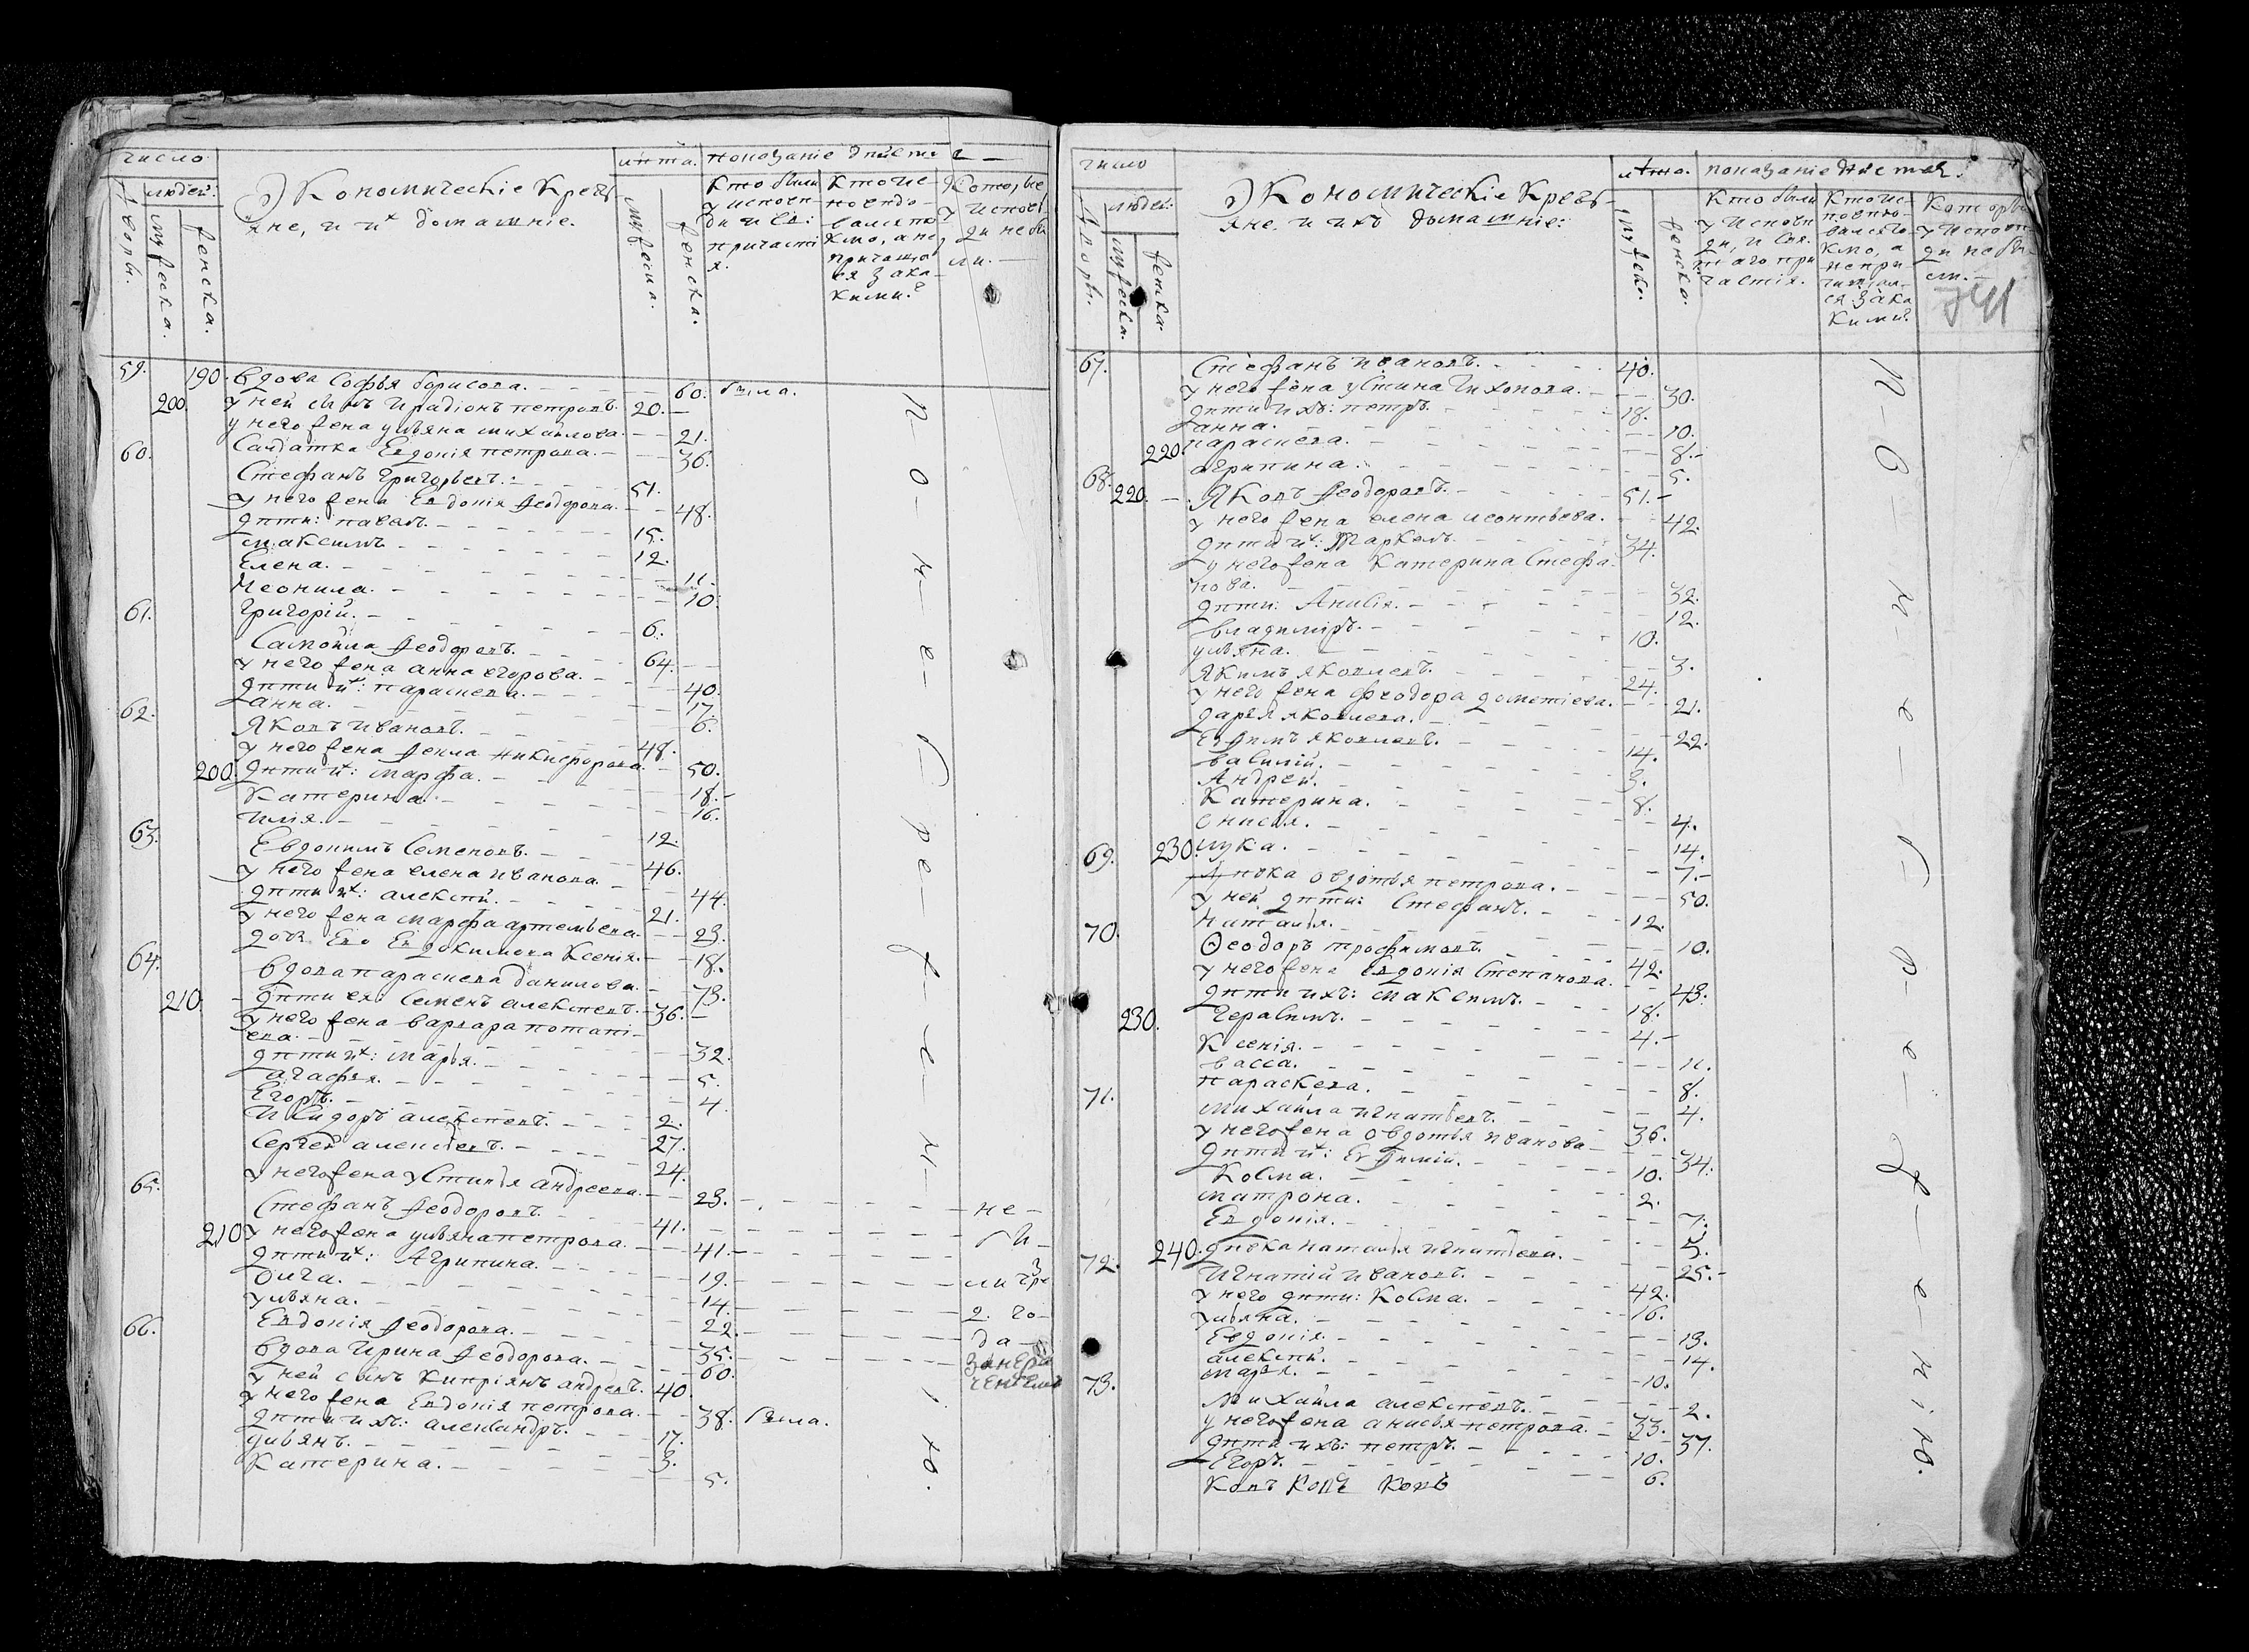 число
людей:
Дворы.
мужеска.
женска.
Экономическіе Кресть
яне, и их домашніе.
лѣта.
мужеска.
женска.
показаніе дѣйст.
Кто были
у исповѣ
ди и св:
причасті
я.
Кто ис-
повѣдо-
вался то
кмо, а не
причащал
ся за ка-
кими.
Которые
у испове
ди не бы
ли.
59. 190. вдова Софья борисова. 60. была.
200. у ней сынъ Ирадіонъ петровъ. 20.
у него жена ульяна михайлова. 21.
Салдатка Евдокія петрова. 36.
60. Стефанъ Григорьевъ. 51.
у него жена Евдокія Ѳеодорова. 48.
дѣти: павелъ. 15.
максимъ 12.
Елена. 11.
Неонила. 10.
Григорій. 6.
61. Самойла Ѳеодоровъ. 64.
у него жена анна егорова. 40.
дѣти их: параскева. 17.
анна. 6.
62. Яковъ ивановъ. 48.
у него жена Ѳекла никифорова. 50.
200. дѣти их: марфа. 18.
Катерина. 16.
илія. 12.
63. Евдокимъ Семеновъ. 46.
у него жена елена иванова. 44.
дѣти их: алексѣй. 21.
у него жена марфа артемьева. 23.
дочь Ево Евдокимова Ксенія. 18.
64. вдова параскева данилова. 73.
210. дѣти ея: Семенъ алексѣевъ. 36.
у него жена варвара потапі-
ева. 32.
дѣти их: марья. 5.
агафья. 4.
Егоръ. 2.
Исидоръ алексѣевъ. 27.
Сергей алексѣевъ. 24.
у него жена устинья андреева. 23.
65. Стефанъ Ѳеодоровъ. 41. не
210 у него жена ульяна петрова. 41. бы
дѣти их: Агрипина. 19. ли чре
Олга. 14. 2. го
ульяна. 22. да
Евдокія Ѳеодорова. 35.
66. вдова Ирина Ѳеодорова. 60.
у ней сынъ Кипріянъ андреевъ. 40.
у него жена Евдокія петрова. 38. была.
дѣти ихъ: александръ. 17.
ульянъ. 3.
Катерина. 5.
п-о-м-е-Г-р-е-ж-е-н-і-ю.
число
людей:
Дворы.
мужеска.
женска.
Экономическіе Кресть-
яне, и ихъ домашніе:
лѣта.
мужеска.
женска.
показаніе дѣйства.
Кто были
у Исповѣ
ди, и свя.
таго при
частія.
Кто ис-
повѣдо-
вался то
кмо, а
не при-
чащал-
ся за ка
кими.
Которые
у Исповѣ-
ди не бы-
ли.
67. Стефанъ ивановъ. 40.
у него жена устина тихонова. 30.
дѣти ихъ: петръ. 18.
анна. 10.
220. параскева. 8.
агрипина. 5.
68. 220. Яковъ Ѳеодоровъ. 51.
у него жена елена леонтьева. 42.
дѣти их: Маркелъ. 34.
у него жена Катерина Стефа
нова. 32.
дѣти: Анисія. 12.
владимиръ. 10.
ульяна. 3.
Якимъ яковлевъ. 24.
у него жена феодора дометіева. 21.
дарья яковлева. 22.
Евфимъ яковлевъ. 14.
василій. 3.
Андрей. 8.
Катерина. 4.
онисья. 14.
230. лука. 7.
69. дѣвка овдотья петрова. 50.
у ней дѣти: Стефанъ. 12.
Наталья. 10.
70. Ѳеодоръ трофимовъ. 42.
у него жена Евдокія Степанова. 43.
дѣти ихъ: максимъ. 18.
230. Герасимъ. 4.
Ксенія. 11.
васса. 8.
параскева. 4.
71. михайла игнатьевъ. 36.
у него жена овдотья иванова 34.
дѣти их: Евфимій. 10.
Косма. 2.
матрона. 7.
Евдокія. 5.
240. дѣвка наталья игнатьева. 25.
72. Игнатій ивановъ. 42.
у него дѣти: Косма. 16.
ульяна. 13.
Евдокія. 14.
алексѣй. 10.
марья. 2.
73. Михайла алексѣевъ. 33.
у него жена анисья петрова. 37.
дѣти ихъ: петръ. 10.
Егоръ. 6.
п-о-м-е-Г-р-е-ж-е-н-і-ю.